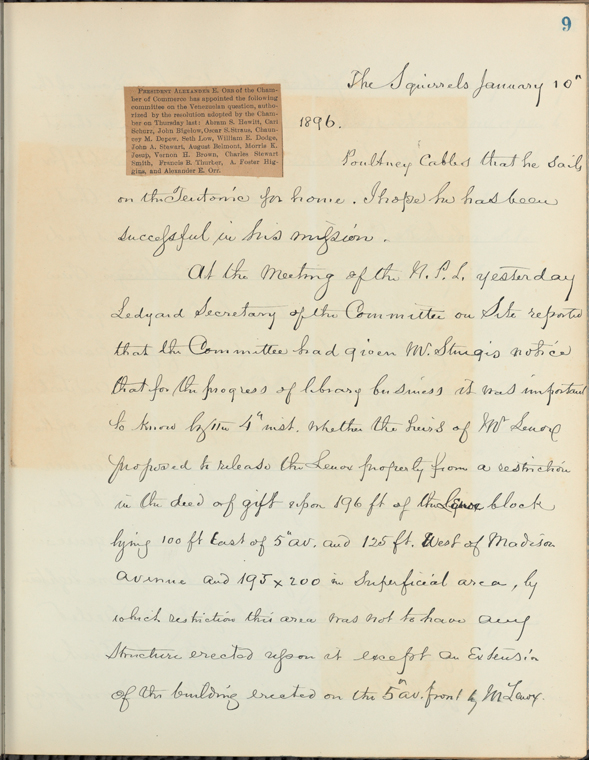 9
The Squirrels January 10"
PRESIDENT ALEXANDER E. ORR of the Cham-
ber of Commerce has appointed the following
committee on the Venezuelan question, autho-
rized by the resolution adopted by the Cham-
ber on Thursday last: Abram S. Hewitt, Carl
Schurz, John Bigelow, Oscar S. Straus, Chaun-
cey M. Depew, Seth Low, William E. Dodge,
John A. Stewart, August Belmont, Morris K.
Jesup, Vernon H. Brown, Charles Stewart
Smith, Francis B. Thurber, A. Foster Hig-
gins, and Alexander E. Orr.
1896.
Poultney Cabled that he sails
on the Teutonic for home. I hope he has been
successful in his mission.
At the Meeting of the N. P. L. yesterday
Ledyard Secretary of the Committee on Site reported
that the Committee had given Mr. Sturgis notice
that for the progress of library business it was important
to know by the 4" inst. whether the heirs of Mr Lenox
proposed to release the Lenox property from a restriction
in the deed of gift upon 196 ft of the Lenox block
lying 100 ft East of 5" av. and 125 ft. West of Madison
avenue and 195 x 200 in Superficial area, by
which restriction this area was not to have any
Structure erected upon it except an Extension
of the building erected on the 5" av. front by Mr Lenox.